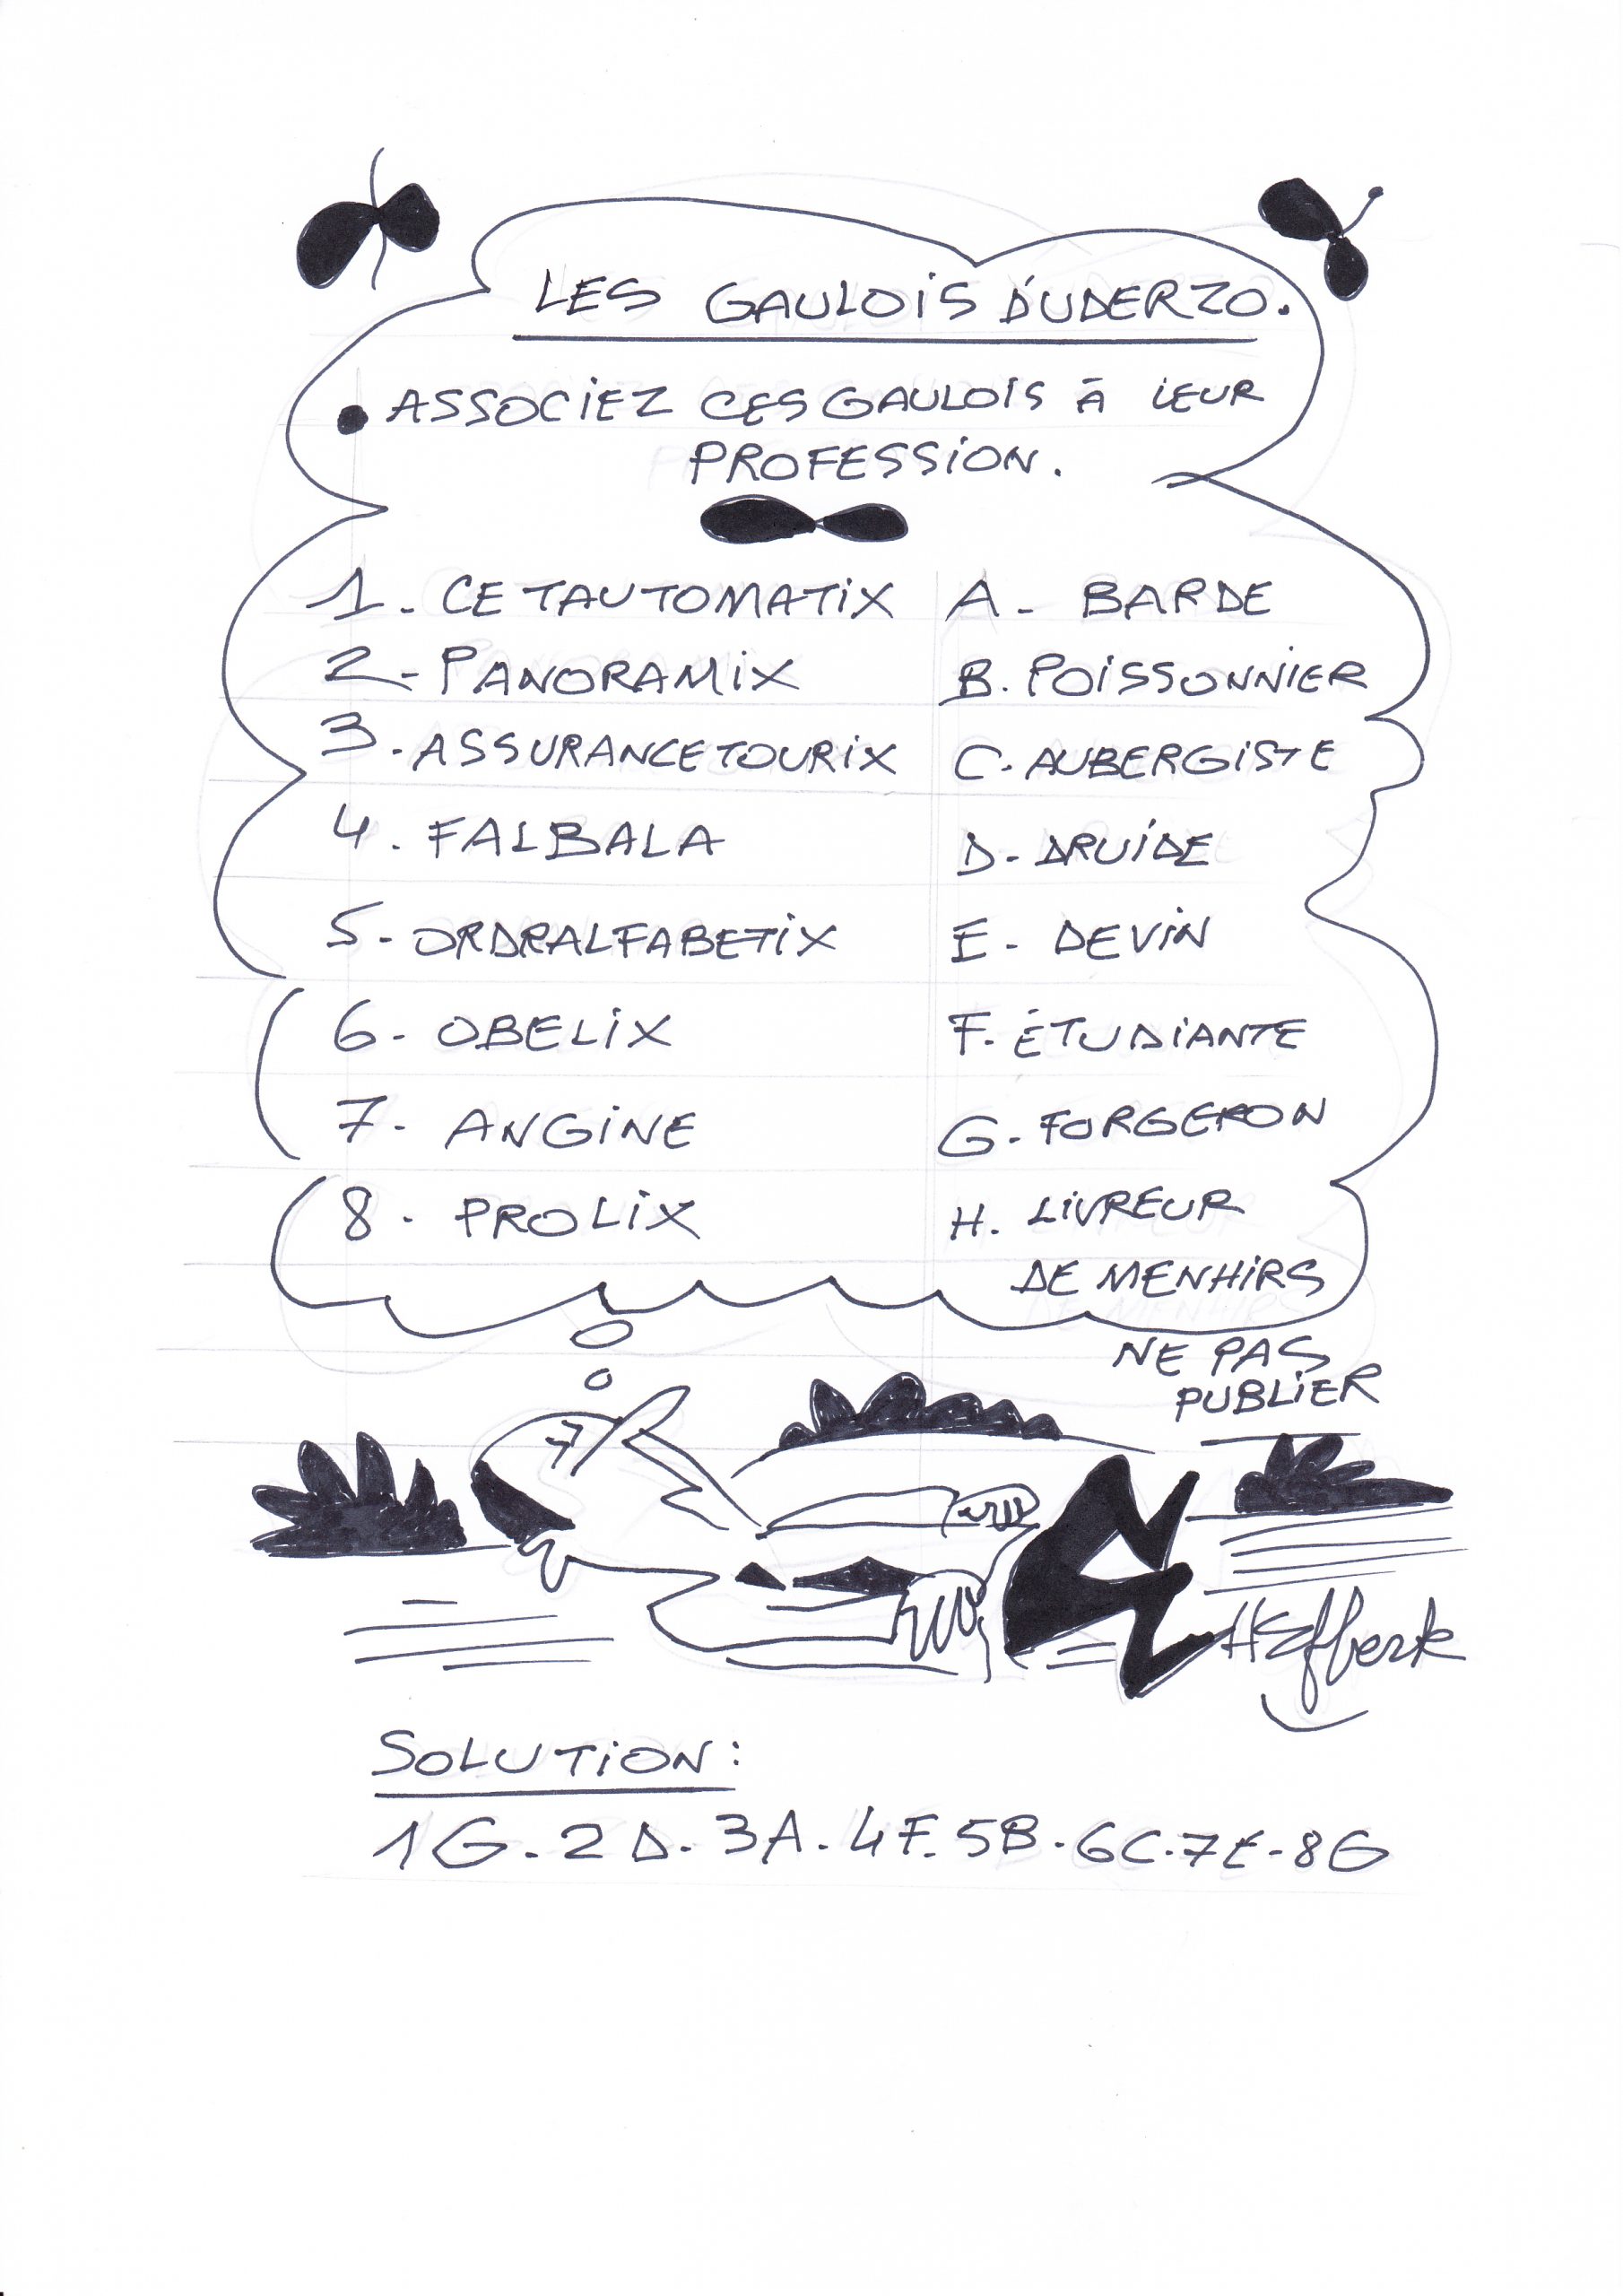 LES GAULOIS D'UDERZO.
• ASSOCIEZ CES GAULOIS À LEUR
PROFESSION.
1. CETAUTOMATIX
A. BARDE
2. PANORAMIX
B. POISSONNIER
3. ASSURANCETOURIX
C. AUBERGISTE
4. FALBALA
D. DRUIDE
5. ORDRALFABETIX
E. DEVIN
6. OBELIX
F. ÉTUDIANTE
7. ANGINE
G. FORGERON
8. PROLIX
H. LIVREUR
DE MENHIRS
NE PAS
PUBLIER
SOLUTION:
1G. 2D. 3A. 4F. 5B. 6C. 7E. 8G